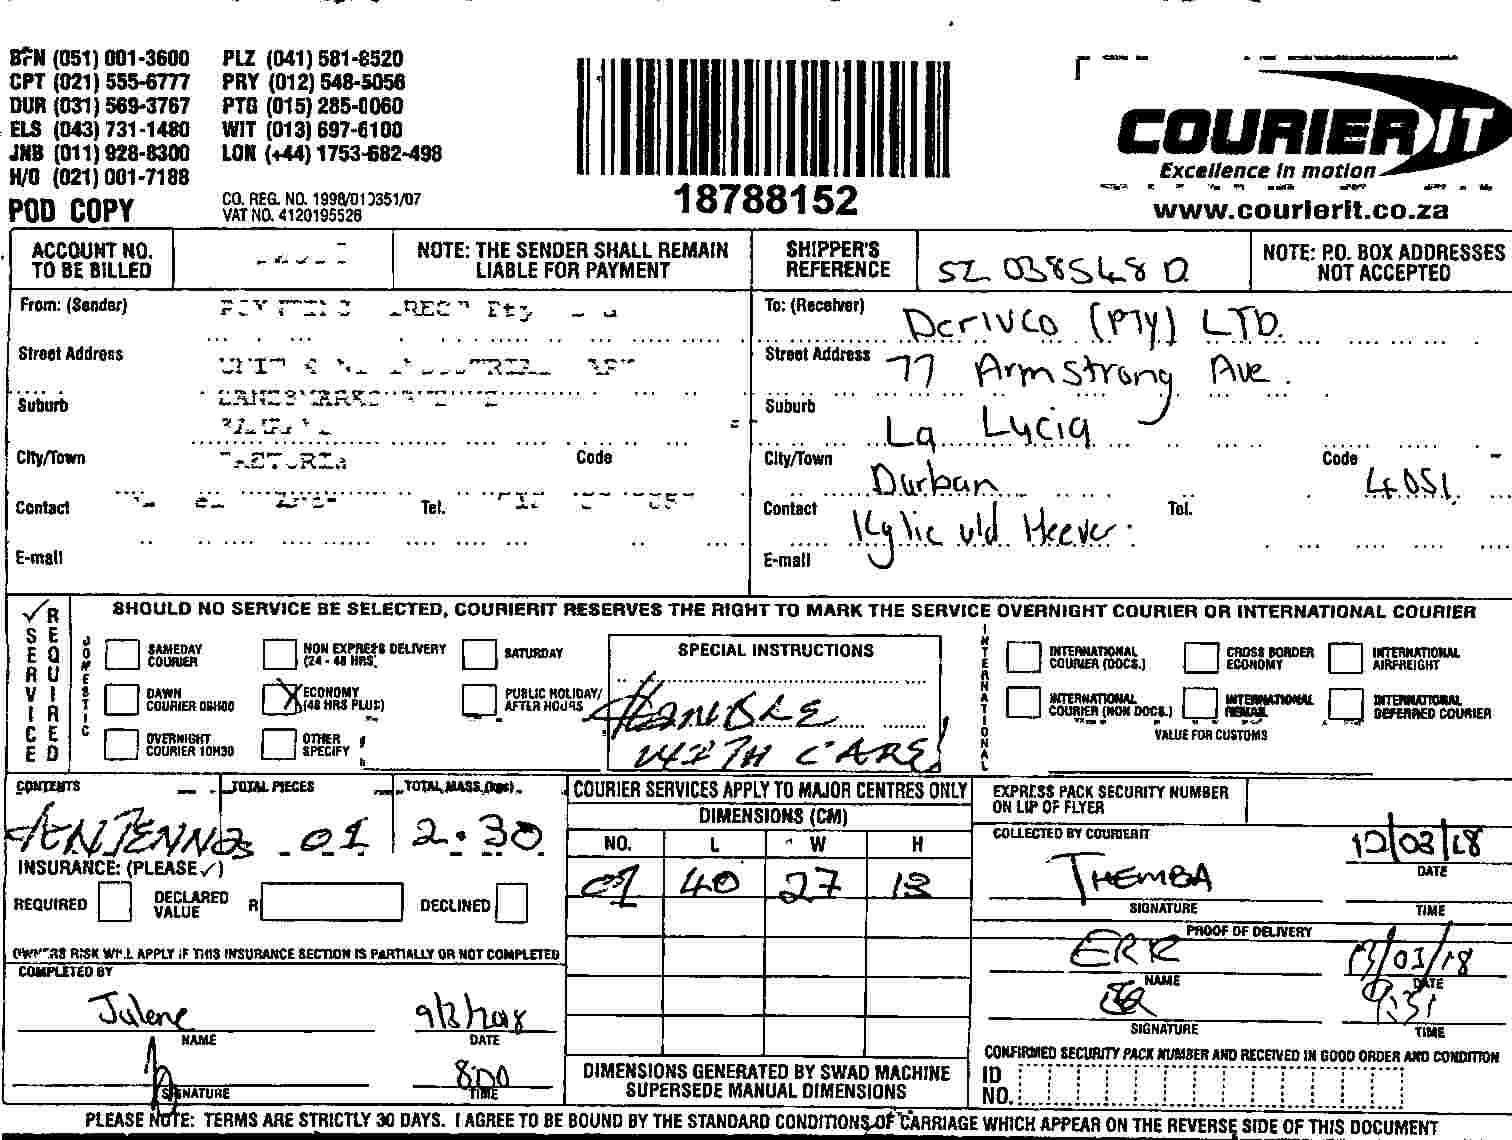 BFN (051) 001-3600 PLZ (041) 581-8520
CPT (021) 555-6777 PRY (012) 548-5056
DUR (031) 569-3767 PTG (015) 285-0060
ELS (043) 731-1480 WIT (013) 697-6100
JNB (011) 928-8300 LON (+44) 1753-682-498
H/O (021) 001-7188
POD COPY
CO. REG. NO. 1998/010351/07
VAT NO. 4120195526
18788152
COURIER IT
Excellence in motion
www.courierit.co.za
ACCOUNT NO. TO BE BILLED
NOTE: THE SENDER SHALL REMAIN LIABLE FOR PAYMENT
SHIPPER'S REFERENCE SZ 038548 D
NOTE: P.O. BOX ADDRESSES NOT ACCEPTED
From: (Sender) Pty
Street Address
Suburb
City/Town Code
Contact Tel.
E-mail
To: (Receiver) Derivco (Pty) LTD.
Street Address 77 Armstrong Ave.
Suburb La Lucia
City/Town Durban Code 4051.
Contact Kylie vld Heever Tel.
E-mail
SERVICE REQUIRED
SHOULD NO SERVICE BE SELECTED, COURIERIT RESERVES THE RIGHT TO MARK THE SERVICE OVERNIGHT COURIER OR INTERNATIONAL COURIER
DOMESTIC
SAMEDAY COURIER
NON EXPRESS DELIVERY (24 - 48 HRS)
SATURDAY
DAWN COURIER 08H00
ECONOMY (48 HRS PLUS)
PUBLIC HOLIDAY/ AFTER HOURS
OVERNIGHT COURIER 10H30
OTHER SPECIFY
SPECIAL INSTRUCTIONS
HANDLE
WITH CARE!
INTERNATIONAL
INTERNATIONAL COURIER (DOCS.)
CROSS BORDER ECONOMY
INTERNATIONAL AIRFREIGHT
INTERNATIONAL COURIER (NON DOCS.)
INTERNATIONAL REMAIL
INTERNATIONAL DEFERRED COURIER
VALUE FOR CUSTOMS
CONTENTS TOTAL PIECES TOTAL MASS (kgs)
ANTENNAS 01 2.30
INSURANCE: (PLEASE ✓)
REQUIRED DECLARED VALUE R DECLINED
OWNERS RISK WILL APPLY IF THIS INSURANCE SECTION IS PARTIALLY OR NOT COMPLETED
COMPLETED BY
Julene 9/3/2018
NAME DATE
8:00
SIGNATURE TIME
COURIER SERVICES APPLY TO MAJOR CENTRES ONLY
DIMENSIONS (CM)
NO. L W H
01 40 27 13
DIMENSIONS GENERATED BY SWAD MACHINE SUPERSEDE MANUAL DIMENSIONS
EXPRESS PACK SECURITY NUMBER ON LIP OF FLYER
COLLECTED BY COURIERIT
THEMBA 12/03/18
SIGNATURE DATE
TIME
PROOF OF DELIVERY
ERR 13/03/18
NAME DATE
9:31
SIGNATURE TIME
CONFIRMED SECURITY PACK NUMBER AND RECEIVED IN GOOD ORDER AND CONDITION
ID NO.
PLEASE NOTE: TERMS ARE STRICTLY 30 DAYS. I AGREE TO BE BOUND BY THE STANDARD CONDITIONS OF CARRIAGE WHICH APPEAR ON THE REVERSE SIDE OF THIS DOCUMENT